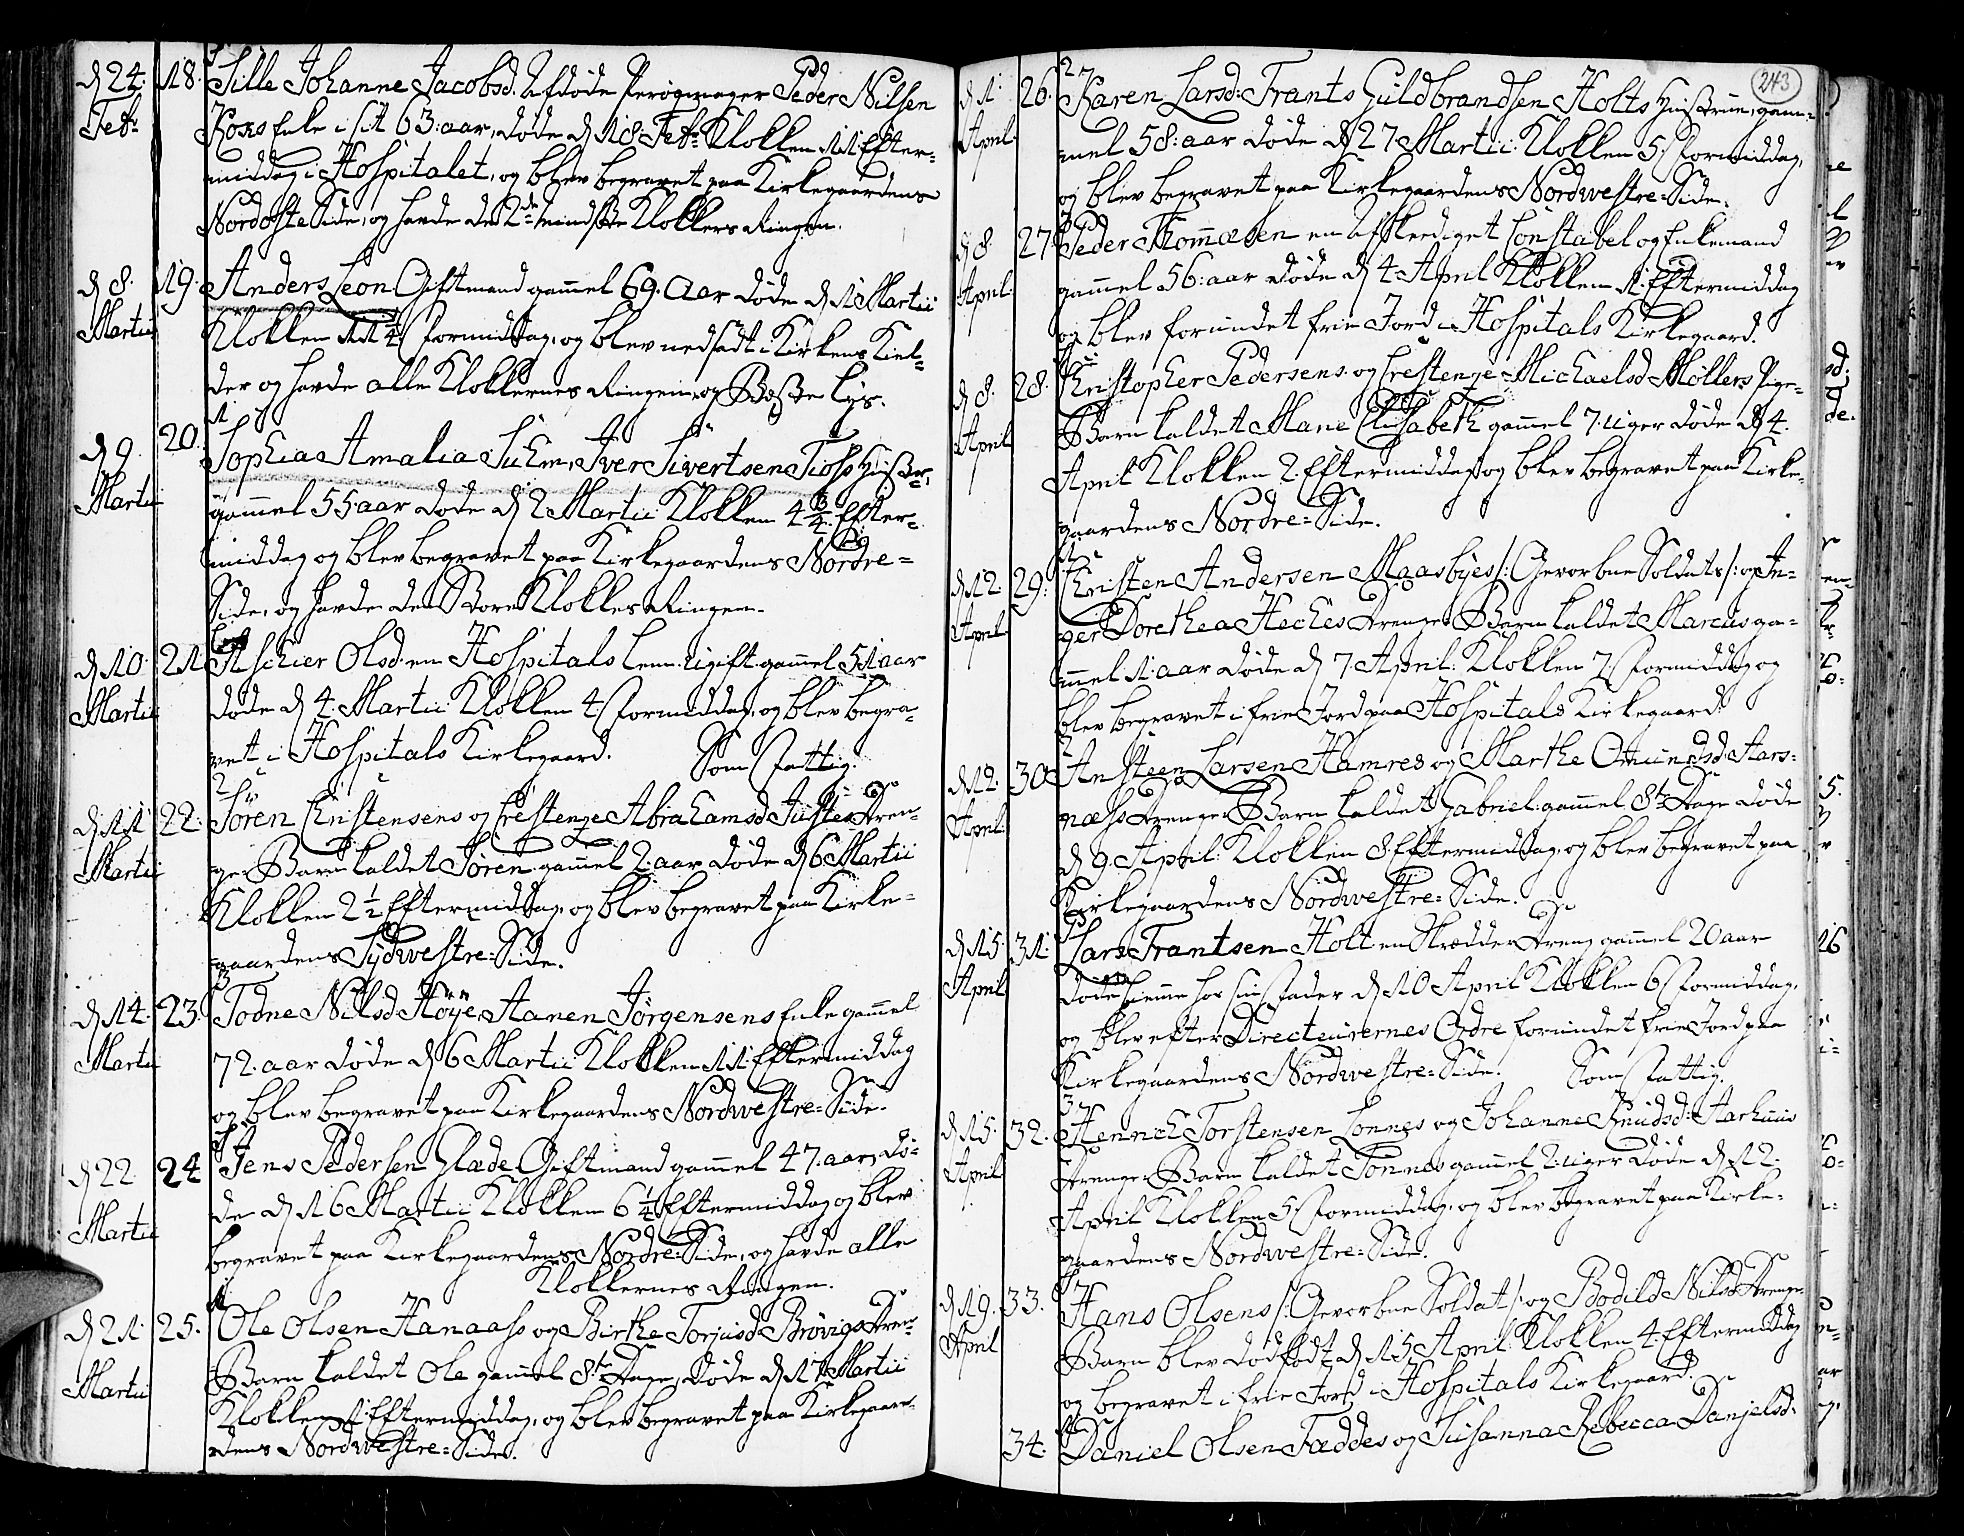 d 24. 18. Sille Johanne Jacobsd. Afdøde Perüqmager Peder Nilsen
Febr. Kors Enke i sit 63: aar, døde d 18: Febr: Klokken 11 Efter-
middag i Hospitalet, og blev begravet paa Kirkegaardens
Nordoste Side, og havde de 2de mindste Klokkers Ringen.
d 8. 19. Anders Leon Giftmand gammel 69. Aar døde d 1 Martii
Martii Klokken 11 1/4 Formiddag, og blev nedsadt i Kirkens Kiel-
der og havde alle Klokkernes Ringen, og Lys.
1
d 9. 20. Sophia Amalia Suhm, Iver Sivertsen Tiohs Hustr.
Martii gammel 55 aar døde d 2 Martii Klokken 4 3/4 Efter-
middag og blev begravet paa Kirkegaardens Nordre-
Side, og havde den Store Klokkes Ringen.
d 10. 21 Aschier Olsd. en Hospitals Lem ugift gammel 51 aar
Martii døde d 4. Martii Klokken 4 Formiddag, og blev begra-
vet i Hospitals Kirkegaard. Som Fattig.
2
d 11 22. Søren Christensens og Crestenze Abrahamsd Justes Dren-
Martii ge Barn kaldet Søren gammel 2. aar døde d 6 Martii
Klokken 2 1/2 Eftermiddag, og blev begravet paa Kirke-
gaardens Sydwestre-Side.
3
d 14. 23. Todne Nilsd. Höye, Aanen Jørgensens Enke gammel
Martii 72. aar døde d 6 Martii Klokken 11. Eftermiddag
og blev begravet paa Kirkegaardens Nordwestre-Side.
d 22. 24 Jens Pedersen Glade Giftmand gammel 47. aar, dö-
Martii de d 16 Martii Klokken 6 1/4 Eftermiddag og blev
begravet paa Kirkegaardens Nordre-Side, og havde alle
Klokkernes Ringen.
d 21. 25. Ole Olsen Hanaahs og Birthe Torjusd Brövigs Dren-
Martii Barn kaldet Ole gammel 8te Dage, døde d 17 Martii
Klokken 1 Eftermiddag, og blev begravet paa Kirkegaar-
dens Nordwestre-Side.
243
2
d 1. 26. Karen Larsd: Frants Guldbrandsen Holts Hustrue, gam-
April mel 58: aar døde d 27 Martii Klokken 5. Formiddag,
og blev begravet paa Kirkegaardens Nordwestre-Side.
d 8. 27. Peder Thommesen en Afskediget Constabel og Enkemand
April. gammel 56: aar døde d 4. April Klokken 1. Eftermiddag
og blev forundet frie Jord i Hospitals Kirkegaard.
d 8. 28. Christopher Pedersens og Crestenze Michaelsd Møllers Pige-
April Barn kaldet Mane Elisabeth gammel 7. uger døde d 4.
April Klokken 2. Eftermiddag og blev begravet paa Kirke-
gaardens Nordre-Side.
d 12. 29. Christen Andersen Maasbyes /: Gevorbne Soldats /: og In-
April ger Dorethea Heches Drenge Barn kaldet Marcus ga-
mel 1. aar døde d 7 April. Klokken 7 Formiddag og
blev begravet i frie Jord paa Hospitals Kirkegaard.
d 12. 30 Ansteen Larsen Hamres og Marthe Omundsd Aars-
April. næss Drenge Barn kaldet Gabriel gammel 8te Dage døde
d 9. April. Klokken 8 Eftermiddag, og blev begravet paa
Kirkegaardens Nordwestre-Side.
d 15. 31. Lars Frantsen Holt en Skrædder Dreng gammel 20 aar
April døde hiemme hos sin Fader d 10 April Klokken 6 Formiddag,
og blev efter Directeurernes Ordre forundet frie Jord paa
Kirkegaardens Nordwestre-Side. Som Fattig.
3
d 15. 32. Henrich Torstensen Lonnes og Johanne Knudsd: Aarhuus
April Drenge Barn kaldet Tönnes gammel 2. uger døde d 12.
April Klokken 5 Formiddag, og blev begravet paa Kirke-
gaardens Nordwestre-Side.
d 19. 33. Hans Olsens /: Gevorbne Soldat /: og Bodild Nilsd Drenge-
April Barn blev dödfødt d 15 April Klokken 4. Eftermiddag
og begravet i frie Jord i Hospitals Kirkegaard.
34. Daniel Olsen Fæddes og Susanna Rebecca Danjelsd: